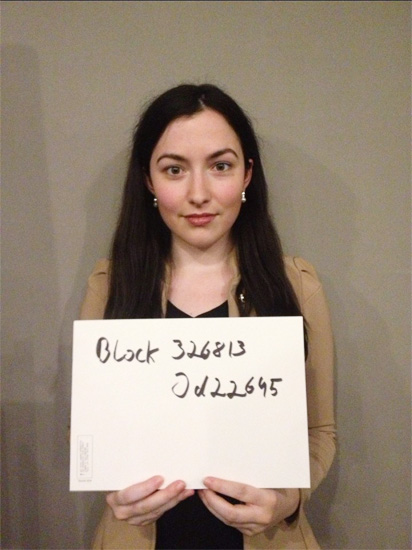 Block 326813
Jd22645